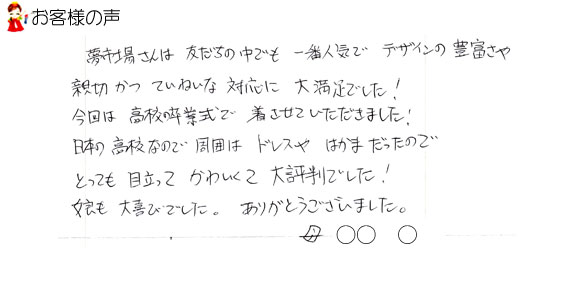 お客様の声
夢市場さんは 友だちの中でも 一番人気で デザインの 豊富さや
親切 かつ ていねいな 対応に 大満足でした!
今回は 高校の卒業式で 着させていただきました!
日本の 高校なので 周囲は ドレスや はかま だったので
とっても 目立って かわいくて 大評判でした!
娘も 大喜びでした。 ありがとうございました。
母 〇〇 〇